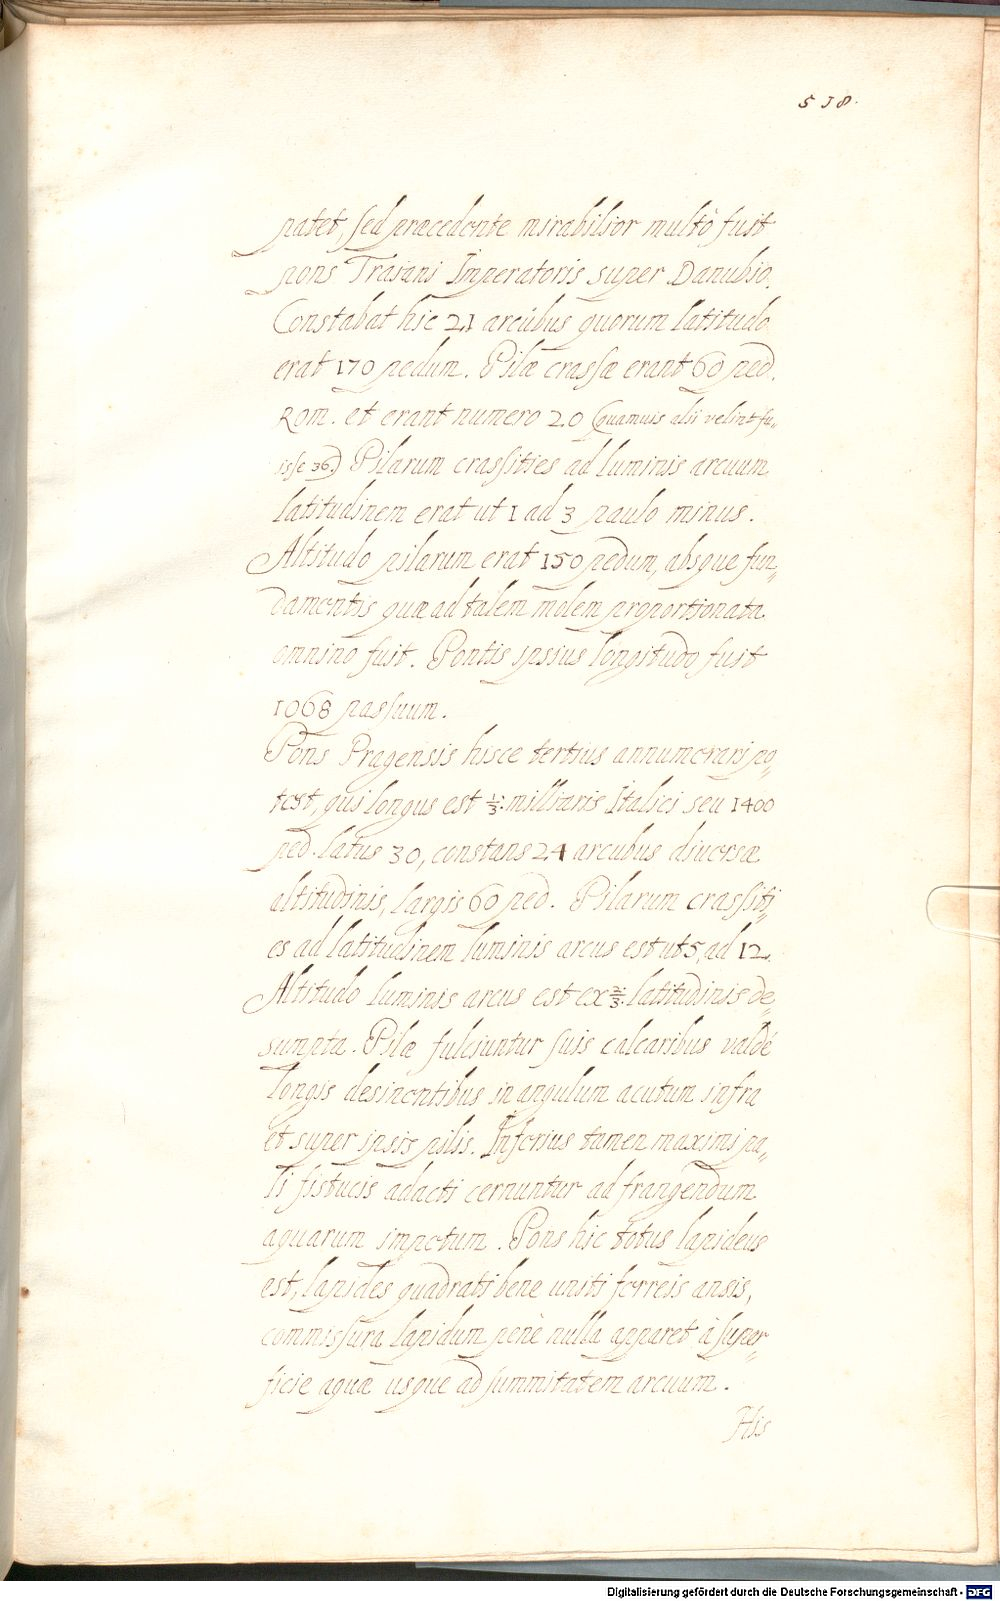 538.
patet, sed præcedente mirabilior multò fuit
pons Traiani Imperatoris super Danubio.
Constabat hic 21 arcubus quorum latitudo
erat 170 pedum. Pilæ crassæ erant 60 ped.
Rom. et erant numero 20 (quamuis alii velint fu„
isse 36.) Pilarum crassities ad luminis arcuum
latitudinem erat ut 1 ad 3 paulo minus.
Altitudo pilarum erat 150 pedum, absque fun„
damentis quæ ad talem molem proportionata
omnino fuit. Pontis ipsius longitudo fuit
1068 passuum.
Pons Pragensis hisce tertius annumerari po„
test, qui longus est 1/3. milliaris Italici seu 1400
ped. latus 30, constans 24 arcubus diuersæ
altitudinis, largis 60 ped. Pilarum crassiti„
es ad latitudinem luminis arcus est ut 5, ad 12.
Altitudo luminis arcus est ex 2/3. latitudinis de„
sumpta. Pilæ fulciuntur suis calcaribus valdé
longis desinentibus in angulum acutum infra
et super ipsis pilis. Inferius tamen maximi pa„
li fistucis adacti cernuntur ad frangendum
aquarum impetum. Pons hic totus lapideus
est, lapides quadrati bene uniti ferreis ansis,
commissura lapidum penè nulla apparet à super„
ficie aquæ usque ad summitatem arcuum.
His
Digitalisierung gefördert durch die Deutsche Forschungsgemeinschaft - DFG